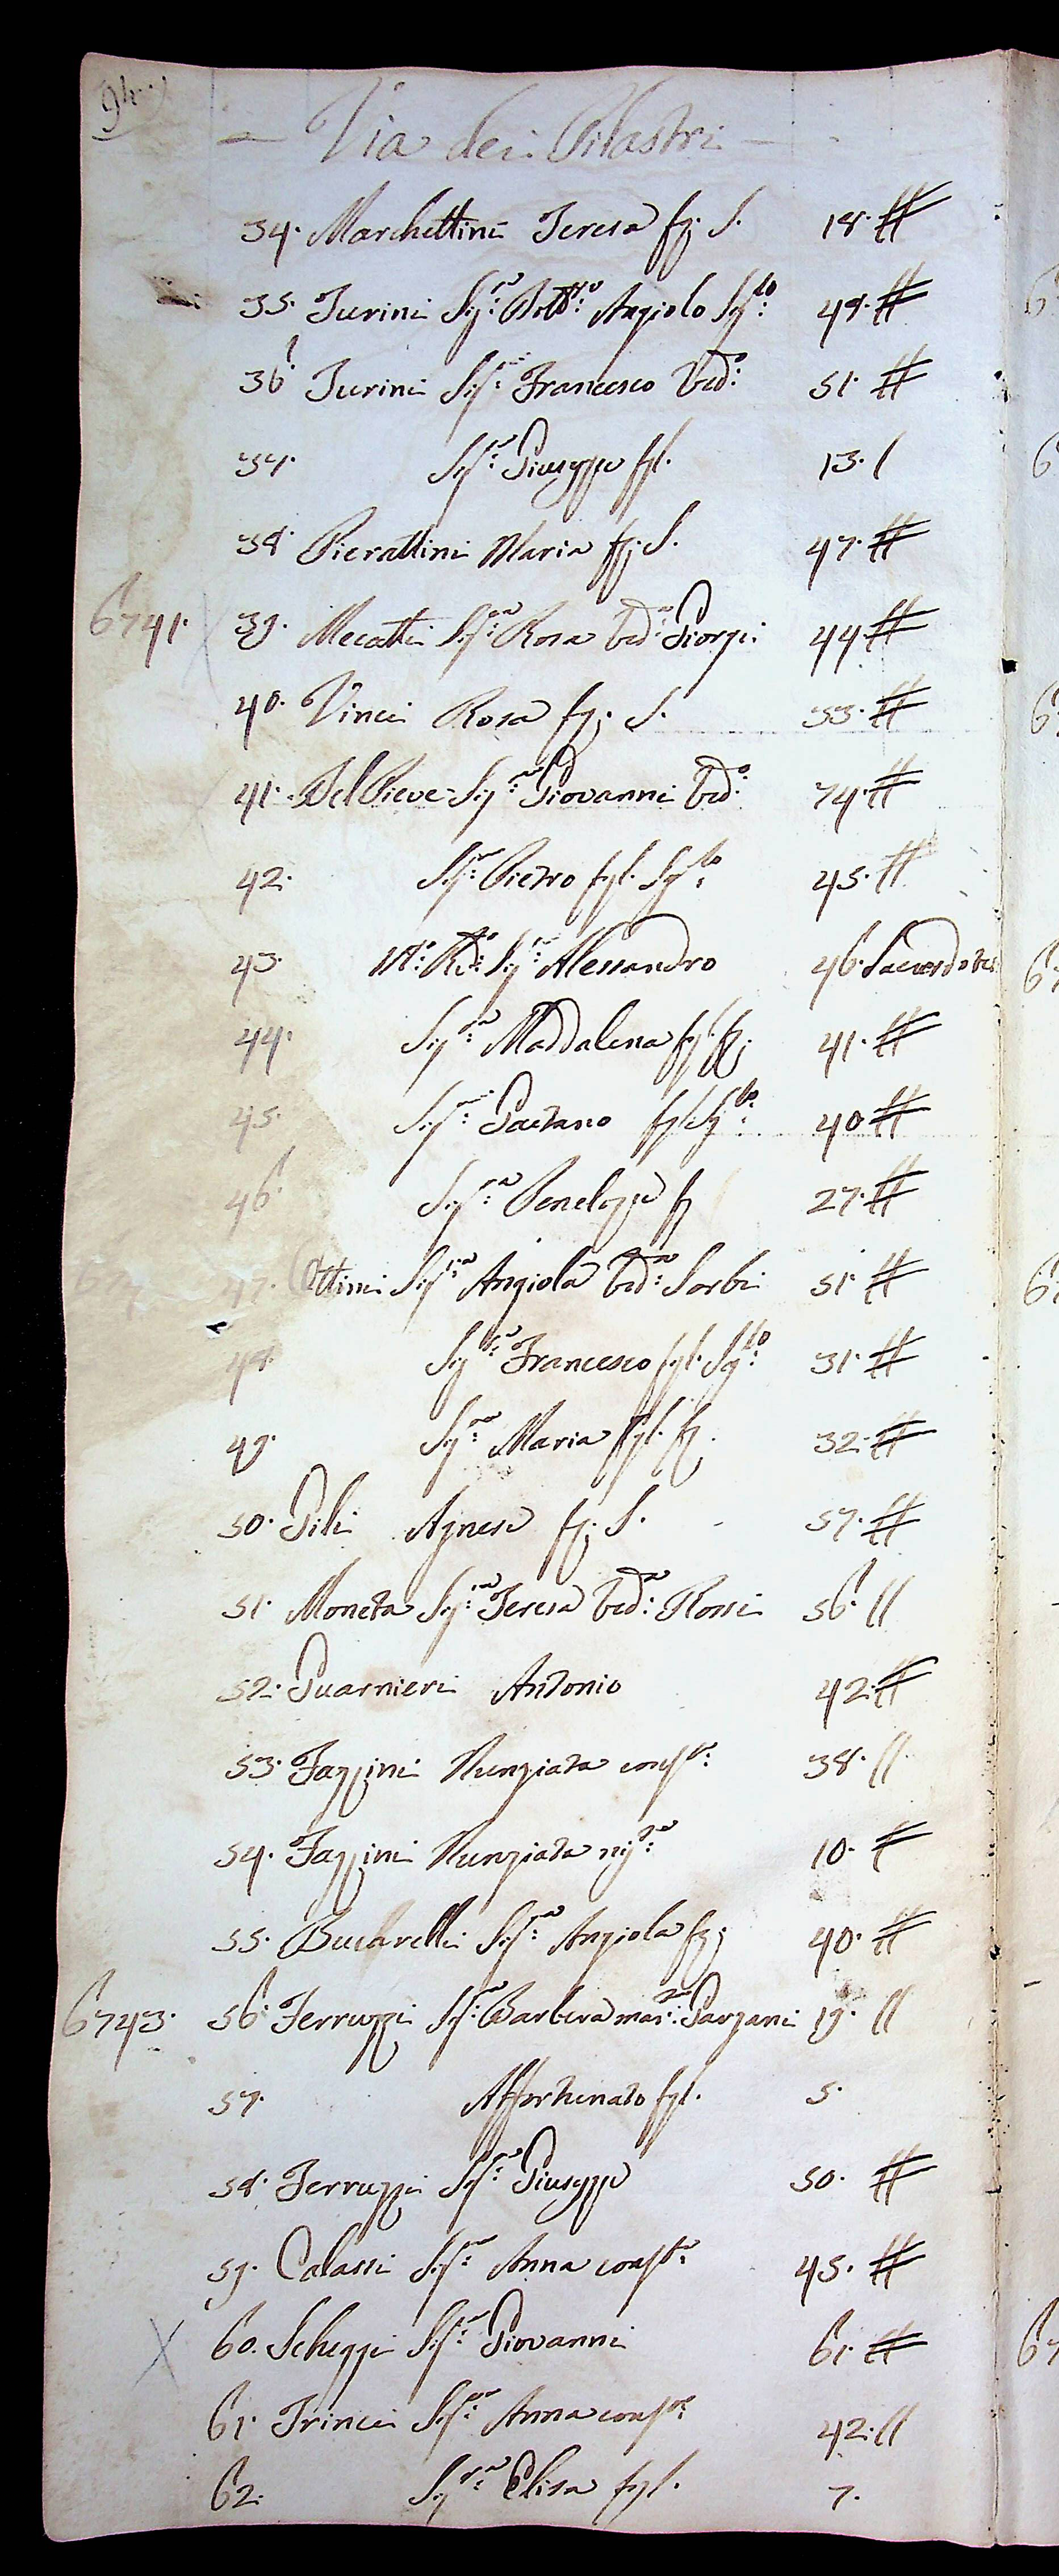 94.
— Via dei Pilastri —
34. Marchettini Teresa fg. S. 18.
35. Turini Sig:re Dott:re Angiolo Sg:to 48.
36 Turini Sig:re Francesco Ved:o 51.
37. Sig:re Giuseppe fgl. 13.
38 Pierattini Maria fg. S. 47.
6741. 39. Mecatti Sig:ra Rosa Ved:a Giorgi 44.
40. Vinci Rosa fg. S. 53.
41. Del Pieve Sig:re Giovanni Ved:o 74.
42. Sig:re Pietro fgl. Sg:to 45.
43. M:to Rd:o Sig:re Alessandro 46. Sacerdote
44. Sig:ra Maddalena fgl. fg. 41.
45. Sig:re Gaetano fgl. Sg:to 40
46. Sig:ra Penelope fg 27.
47. Ottini Sig:ra Angiola Ved:a Sorbi 51.
48. Sig:re Francesco fgl. Sg:to 31.
49. Sig:ra Maria fgl. fg. 32.
50. Gili Agnese fg. S. 57.
51. Moneta Sig:ra Teresa Ved:a Rossi 56.
52. Guarnieri Antonio 42.
53. Fazzini Nunziata cons:te 38.
54. Fazzini Nunziata nip:te 10.
55. Sig:ra Angiola fg. 40.
6743. 56. Ferruzzi Sig:ra Barbera mar:ta Garzani 19.
57. Affortunato fgl. 5.
58. Ferruzzi Sig:re Giuseppe 50.
59. Calassi Sig:ra Anna cons:te 45.
60. Scheggi Sig:re Giovanni 61.
61. Trinci Sig:ra Anna cons:te 42.
62. Sig:ra Elisa fgl. 7.